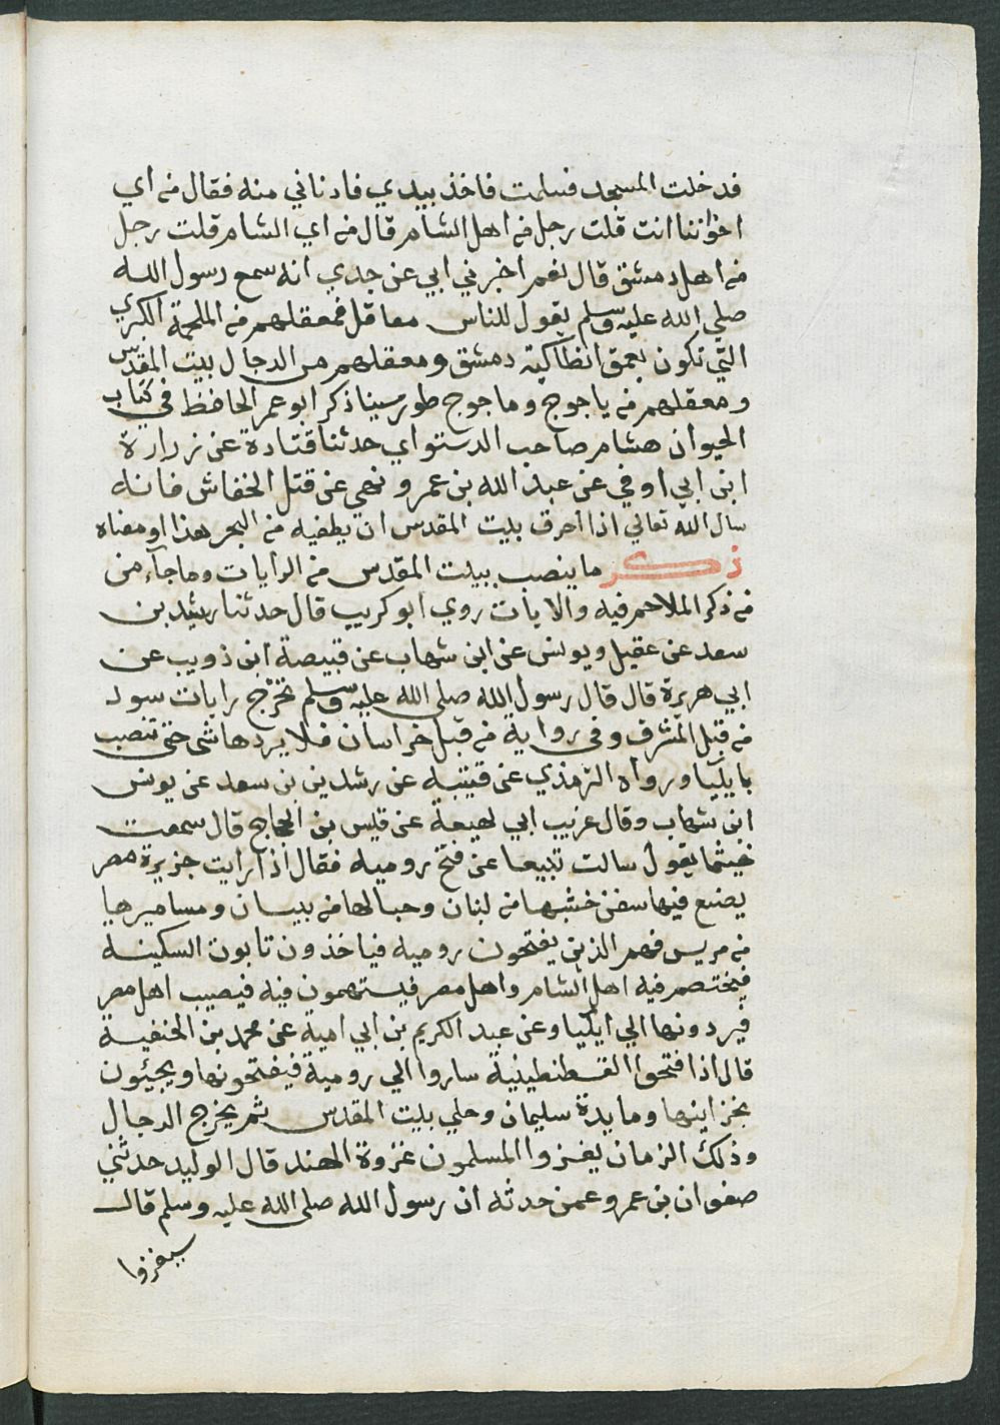 فدخلت المسجد فسلمت فاخذ بيدي فادناني منه فقال من اي
اخواننا انت قلت رجل من اهل الشام قال من اي الشام قلت رجل
من اهل دمشق قال نعم اخبرني ابي عن جدي انه سمع رسول الله
صلي الله عليه وسلم يقول للناس معاقل فمعقلهم من الملحمة الكبري
التي تكون بعمق انطاكية دمشق ومعقلهم من الدجال بيت المقدس
ومعقلهم من ياجوج وماجوج طور سينا ذكر ابو عمر الحافظ في كتاب
الحيوان هشام صاحب الدستواي حدثنا قتادة عن زرارة
ابن ابي اوفي عن عبد الله بن عمر ونهي عن قتل الخفاش فانه
سال الله تعالي اذا احرق بيت المقدس ان يطفيه من البحر هذا او معناه
ذكر ما ينصب ببيت المقدس من الرايات وما جآء من
من ذكر الملاحم فيه والايات روي ابو كريب قال حدثنا رشيد بن
سعد عن عقيل ويونس عن ابن شهاب عن قبيصة ابن ذويب عن
ابي هريرة قال قال رسول الله صلي الله عليه وسلم تخرج رايات سود
من قبل المشرق وفي رواية من قبل خراسان فلا يردها شي حتي تنصب
بايليا ورواه الترمذي عن قتيبه عن رشدين بن سعد عن يونس
ابن شهاب وقال غريب ابي لهيعة عن قيس بن الحجاج قال سمعت
خيثما يقول سالت تبيعا عن فتح روميه فقال اذا رايت جزيرة مصر
يصنع فيها سفن خشبها من لبنان وحبالها من بيسان ومساميرها
من مريس فهم الذين يفتحون روميه فياخذون تابوت السكينه
فيختصم فيه اهل الشام واهل مصر فيستهمون فيه فيصيب اهل مصر
فيردونها الي ايليا وعن عبد الكريم بن ابي امية عن محمد بن الحنفية
قال اذا فتحوا القسطنطينية ساروا الي رومية فيفتحونها ويجيئون
بخزاينها ومايدة سليمان وحلي بيت المقدس ثم يخرج الدجال
وذلك الزمان يغزوا المسلمون غزوة الهند قال الوليد حدثني
صفوان بن عمرو عمن حدثه ان رسول الله صلي الله عليه وسلم قال